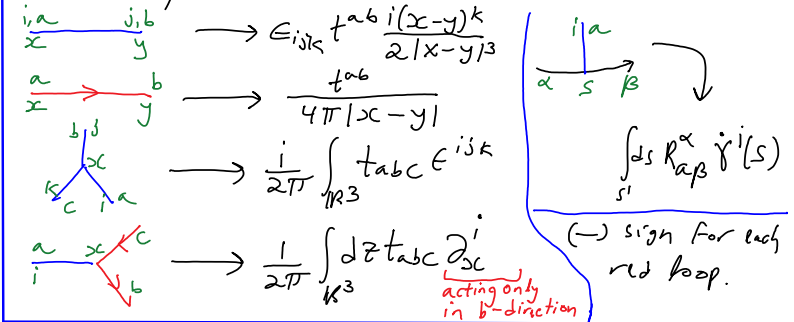 i,a j,b
x y ⟶ ϵ_{ijk} t^{ab} \frac{i(x-y)^k}{2|x-y|^3}
a b
x y ⟶ \frac{t^{ab}}{4π|x-y|}
b j x k c i a ⟶ \frac{i}{2π} ∫_{ℝ^3} t_{abc} ϵ^{ijk}
a i x c b ⟶ \frac{1}{2π} ∫_{ℝ^3} dz t_{abc} ∂^i_x
acting only
in b-direction
i a
α s β
∫_{S^1} ds R^α_{aβ} \dot{γ}^i(s)
(-) sign for each
red loop.